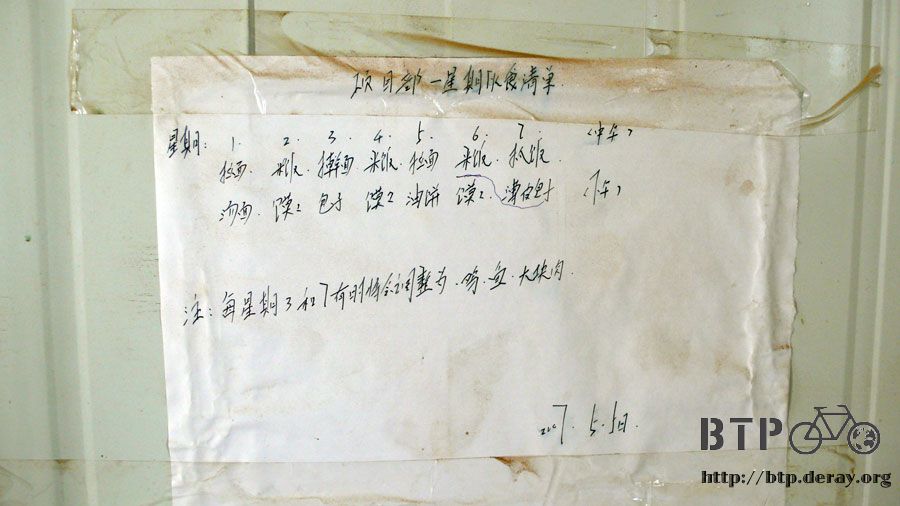 项目部一星期伙食清单.
星期: 1. 2. 3. 4. 5. 6. 7. (中午)
拉面. 米饭. 拌面. 米饭. 拉面. 米饭. 抓饭.
汤面. 馍馍. 包子 馍馍 油饼 馍馍. 薄皮包子 (下午)
注: 每星期3和7有时将会调整为. 鸡. 鱼. 大块肉.
2007. 5. 5日.
BTP
http://btp.deray.org